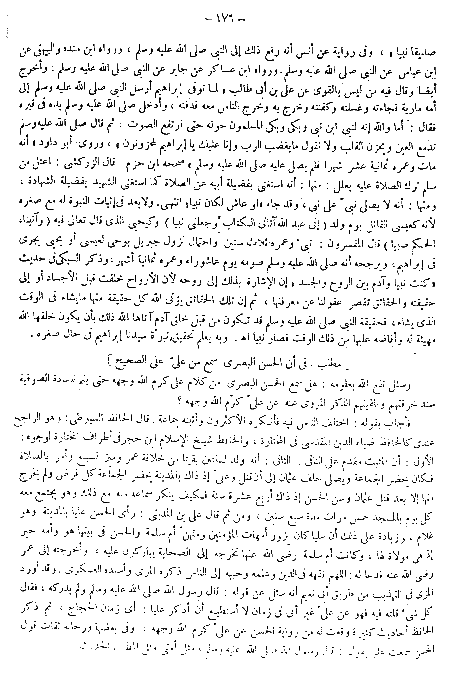 — ١٧٦ —
صديقا نبيا» ، وفى رواية عن أنس أنه رفع ذلك إلى النبي صلى الله عليه وسلم ، ورواه ابن منده والبيهقي عن
ابن عباس عن النبي صلى الله عليه وسلم. ورواه ابن عساكر عن جابر عن النبي صلى الله عليه وسلم : وأخرج
أيضا وقال فيه من ليس بالقوى عن على بن أبى طالب «لما توفى إبراهيم أرسل النبي صلى الله عليه وسلم إلى
أمه مارية فجاءته وغسلته وكفنته وخرج به وخرج الناس معه فدفنه ، وأدخل صلى الله عليه وسلم يده فى قبره
فقال : أما والله إنه لنبى ابن نبى وبكى وبكى المسلمون حوله حتى ارتفع الصوت ؛ ثم قال صلى الله عليه وسلم
تدمع العين ويحزن القلب ولا نقول ما يغضب الرب وإنا عليك يا إبراهيم لمحزونون» ، وروى أبو داود «أنه
مات وعمره ثمانية عشر شهرا فلم يصل عليه صلى الله عليه وسلم» صححه ابن حزم. قال الزركشى : اعتل من
سلم ترك الصلاة عليه بعلل : منها : أنه استغنى بفضيلة أبيه عن الصلاة كما استغنى الشهيد بفضيلة الشهادة ،
ومنها : أنه لا يصلى نبى على نبى، وقد جاء «لو عاش لكان نبيا» انتهى. ولا بعد فى إثبات النبوة له مع صغره
لأنه كعيسى القائل يوم ولد (إنى عبد الله آتانى الكتاب وجعلنى نبيا) وكيحيى الذى قال تعالى فيه (وآتيناه
الحكم صبيا) قال المفسرون : نبئ وعمره ثلاث سنين واحتمال نزول جبريل بوحى لعيسى أو يحيى يجرى
فى إبراهيم، ويرجحه أنه صلى الله عليه وسلم صومه يوم عاشوراء وعمره ثمانية أشهر، وذكر السبكى فى حديث
«كنت نبيا وآدم بين الروح والجسد» إن الإشارة بذلك إلى روحه لأن الأرواح خلقت قبل الأجساد أو إلى
حقيقته والحقائق تقصر عقولنا عن معرفتها ، ثم إن تلك الحقائق يؤتى الله كل حقيقة منها ما يشاء فى الوقت
الذى يشاء، فحقيقة النبي صلى الله عليه وسلم قد تكون من قبل خلق آدم آتاها الله ذلك بأن يكون خلقها الله
مهيئة له وأفاضه عليها من ذلك الوقت فصار نبيا اهـ. وبه يعلم تحقيق نبوة سيدنا إبراهيم فى حال صغره .
[ مطلب : فى أن الحسن البصرى سمع من على على الصحيح ]
وسئل نفع الله بعلومه : هل سمع الحسن البصرى من كلام على كرم الله وجهه حتى يتم للسادة الصوفية
سند خرقتهم وتلقينهم الذكر المروى عنه عن على كرم الله وجهه ؟
فأجاب بقوله : اختلف الناس فيه فأنكره الأكثرون وأثبته جماعة. قال الحافظ السيوطى : وهو الراجح
عندى كالحافظ ضياء الدين المقدسى فى المختارة ، والحافظ شيخ الإسلام ابن حجر فى أطراف المختارة لوجوه :
الأول : أن المثبت مقدم على النافى . الثانى : أنه ولد لسنتين بقيتا من خلافة عمر وميز لسبع وأمر بالصلاة
فكان يحضر الجماعة ويصلى خلف عثمان إلى أن قتل وعلى إذ ذاك بالمدينة يحضر الجماعة كل فرض ولم يخرج
منها إلا بعد قتل عثمان وسن الحسن إذ ذاك أربع عشرة سنة فكيف ينكر سماعه منه مع ذلك وهو يجتمع معه
كل يوم بالمسجد خمس مرات مدة سبع سنين ، ومن ثم قال على بن المدينى : رأى الحسن عليا بالمدينة وهو
غلام ، وزيادة على ذلك أن عليا كان يزور أمهات المؤمنين ومنهن أم سلمة والحسن فى بيتها هو وأمه خيرة
إذ هى مولاة لها ، وكانت أم سلمة رضى الله عنها تخرجه إلى الصحابة يباركون عليه ، وأخرجته إلى عمر
رضى الله عنه فدعا له : اللهم فقهه فى الدين وعلمه وحببه إلى الناس ذكره المزى وأسنده العسكرى. وقد أورد
المزى فى التهذيب من طريق أبى نعيم أنه سئل عن قوله : قال رسول الله صلى الله عليه وسلم ولم يدركه ، فقال
كل شىء قلته فيه فهو عن على غير أنى فى زمان لا أستطيع أن أذكر عليا : أى زمان الحجاج ، ثم ذكر
الحافظ أحاديث كثيرة وقعت له من رواية الحسن عن على كرم الله وجهه ، وفى بعضها ورجاله ثقات قول
الحسن سمعت عليا يقول : قال رسول الله صلى الله عليه وسلم «مثل أمتى مثل المطر» الحديث